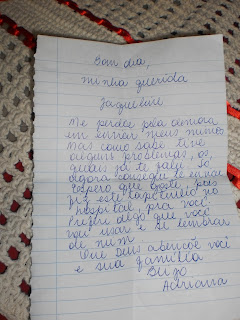 Bom dia,
minha querida
Jaqueline
Me perdoe pela demora
em enviar meus mimos
mas como sabe tive
alguns problemas, os
quais já te falei. Só
agora consegui te enviar
espero que goste, pois
fiz este tapetinho no
hospital, pra você.
Preferi algo que você
vai usar e se lembrar
de mim
Que Deus abençõe você
e sua família
Bijo
Adriana